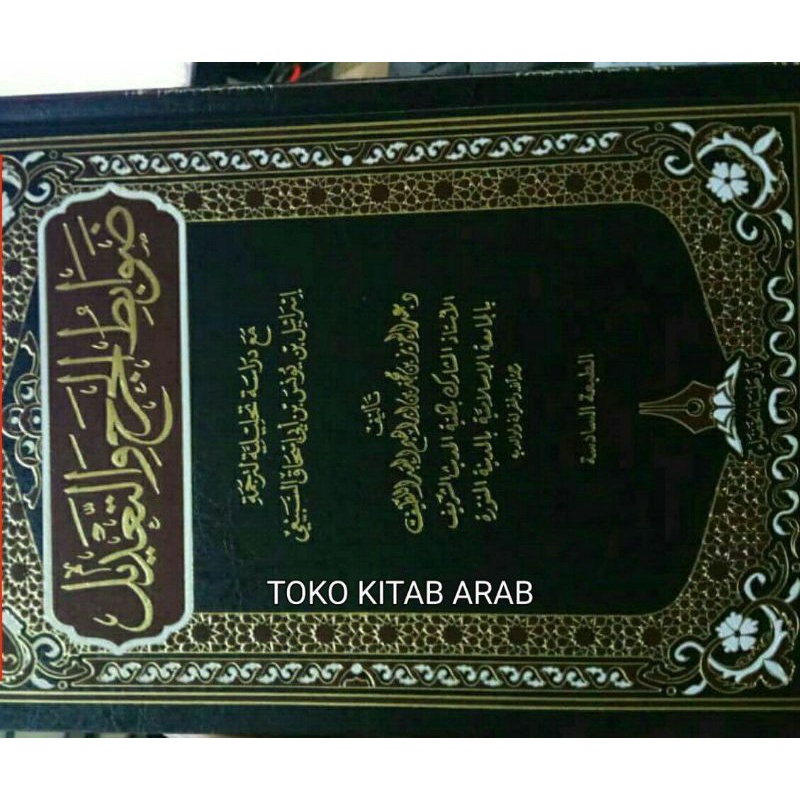 ضَوَابِطُ الجَرْحِ وَالتَّعْدِيلِ
مَعَ دِرَاسَةٍ تَحْلِيلِيَّةٍ لِتَرْجَمَةِ
إِسْرَائِيلَ بْنِ يُونُسَ بْنِ أَبِي إِسْحَاقَ السَّبِيعِيِّ
تَأْلِيفُ
د. عبد العزيز بن محمد بن إبراهيم العبد اللطيف
الأستاذ المشارك بكلية الحديث الشريف
بالجامعة الإسلامية بالمدينة المنورة
الطبعة السادسة
TOKO KITAB ARAB